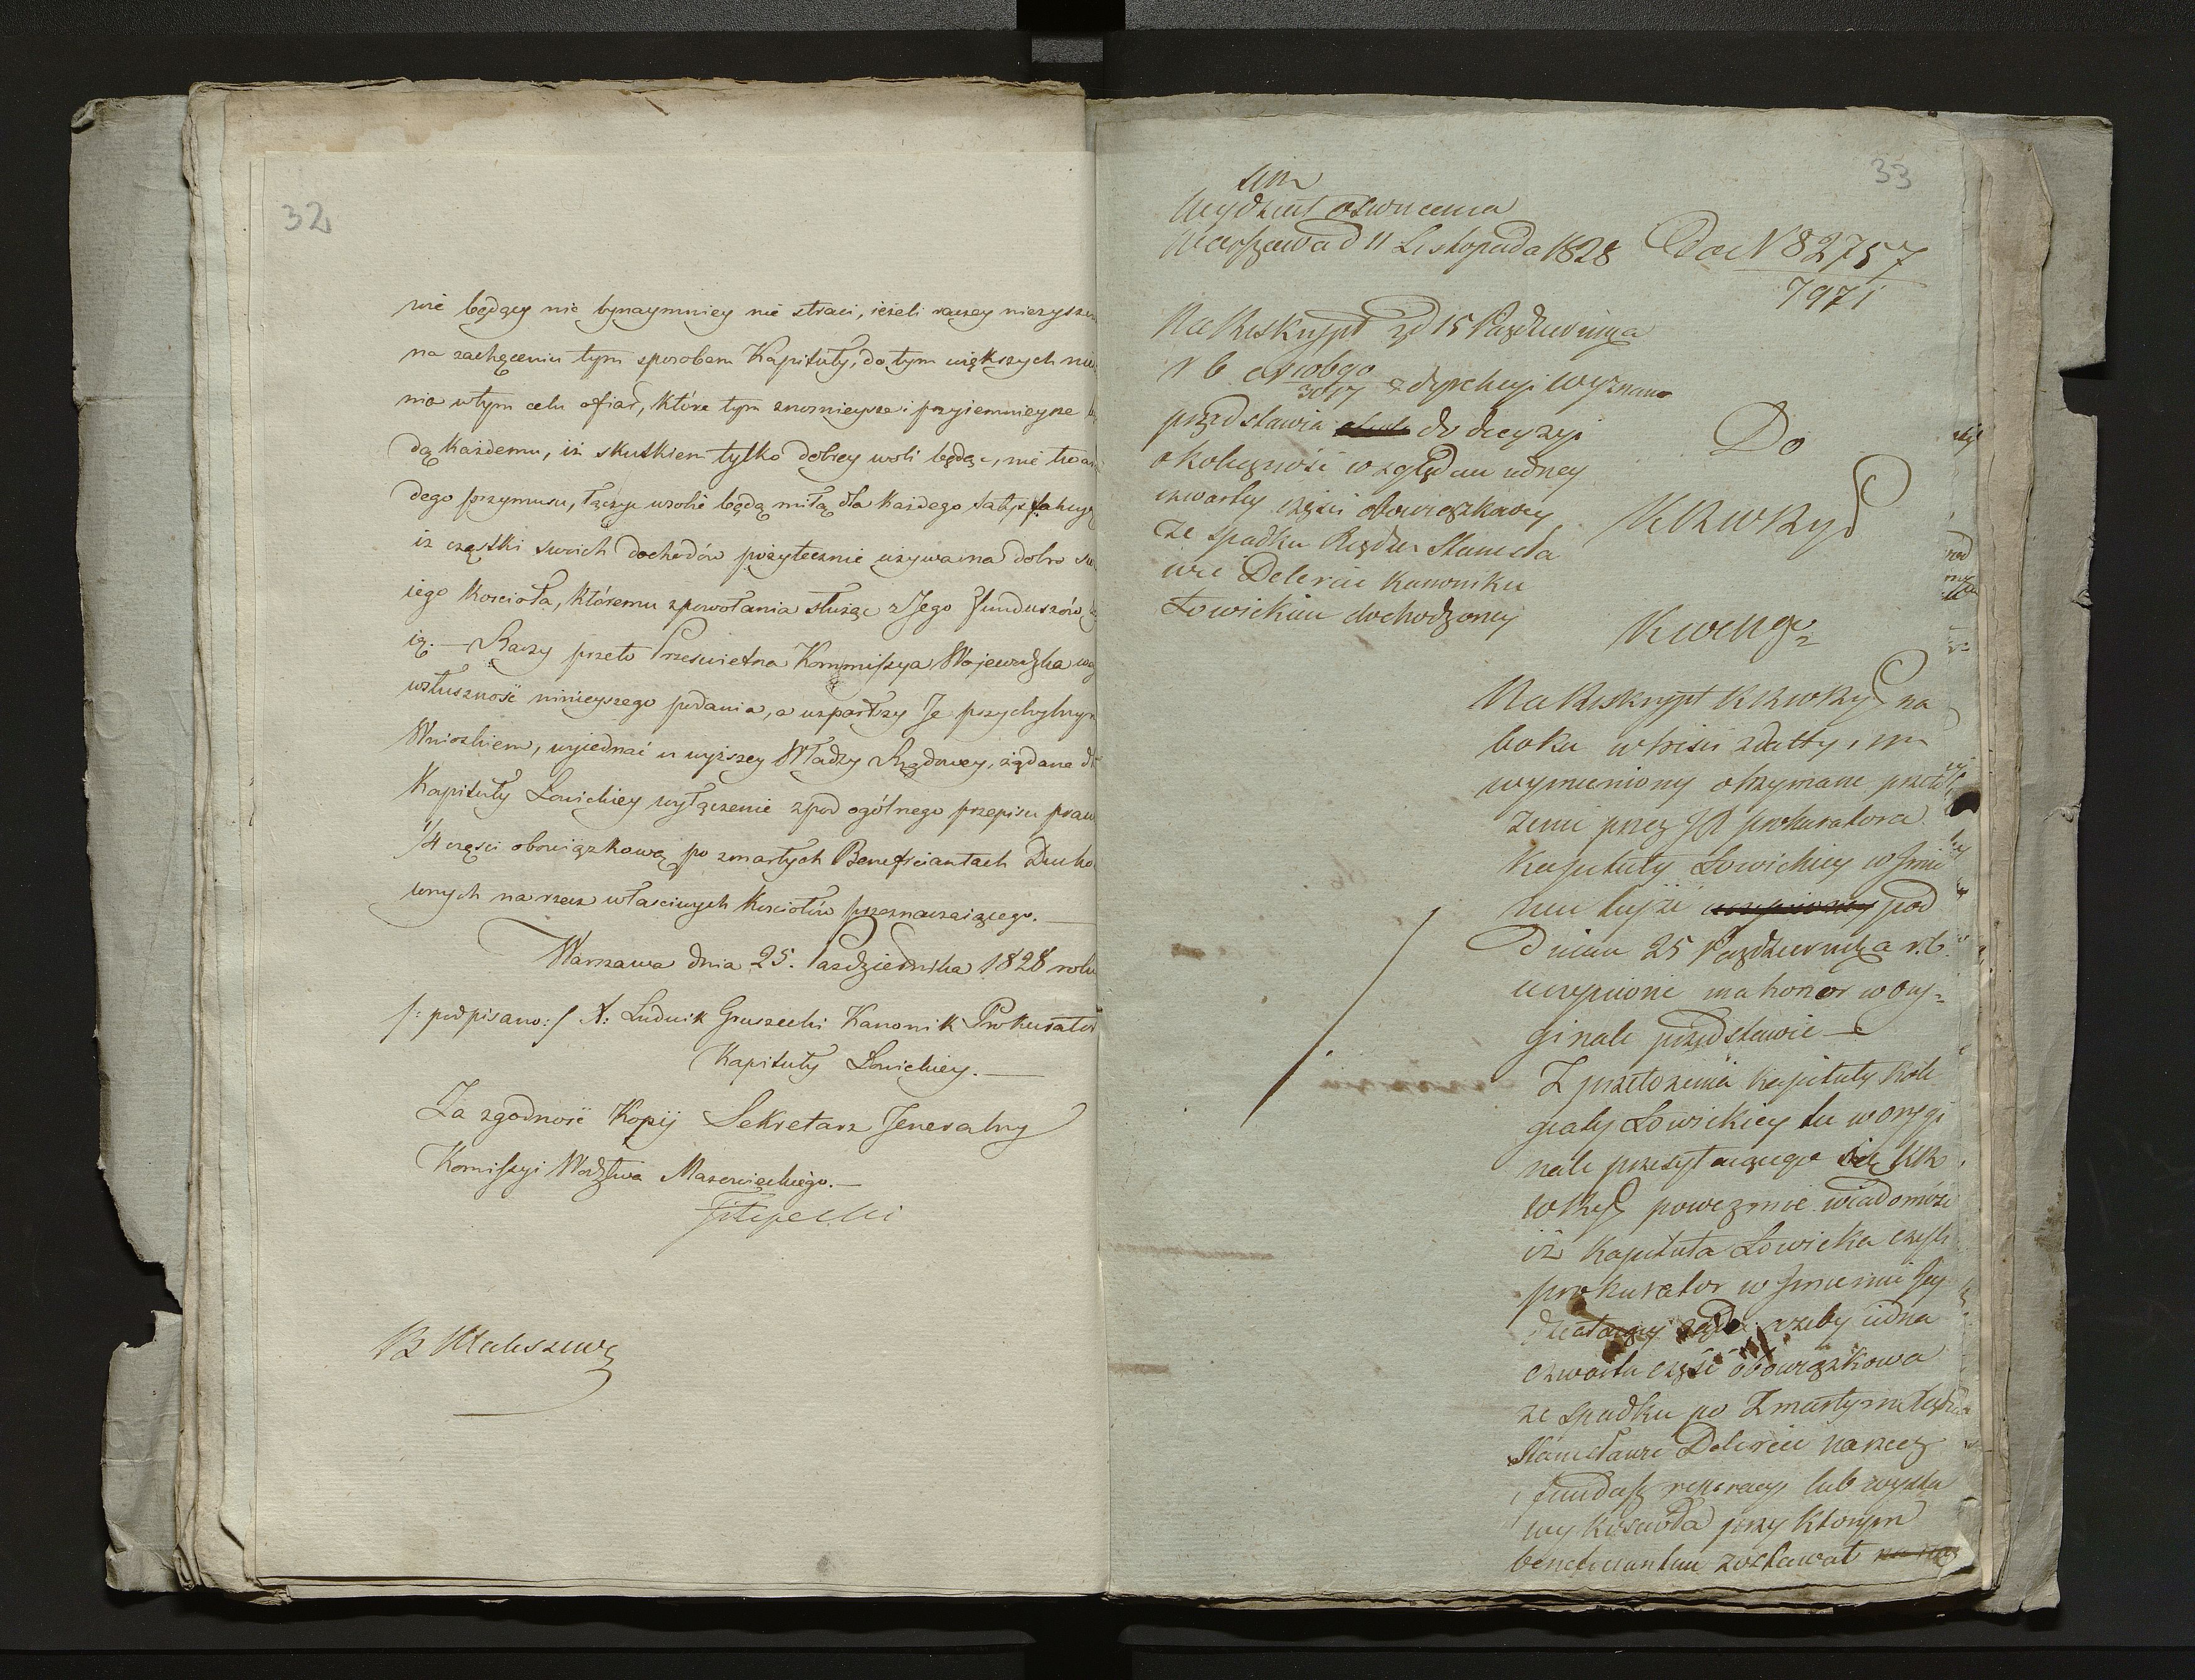 32
wie będący nic bynaymniey nie straci, ieżeli raczey niezyszcze
na zachęceniu tym sposobem Kapituły, do tym większych nie
nia wtym celu ofiar, które tym znośnieysze i przyiemnieysze bę
dą każdemu, iż skutkiem tylko dobrey woli będąc, nie twar
dego przymusu, łączyć wsobie będą miłą dla każdego satysfakcyą
iż cząstki swoich dochodów pożytecznie używa na dobro swo
iego Kościoła, któremu zpowołania służąc z Jego funduszów ży
ią. — Raczy przeto Prześwietna Kommissya Wojewódzka
wsłuszność ninieyszego podania, a wsparłszy Je przychylnym
Wnioskiem, wyiednać u wyższey Władzy Rządowey, żądane dla
Kapituły Łowickiey wyłączenie zpod ogólnego przepisu prawa
1/4 części obowiązkową po zmarłych Beneficiantach Ducho
wnych na rzecz właściwych Kościołów przeznaczaiącego. —
Warszawa dnia 25. Pazdziernika 1828 roku
/: podpisano :/ X: Ludwik Gruszecki Kanonik Prokurator
Kapituły Łowickiey. —
Za zgodność Kopij Sekretarz Jeneralny
Komissyi Wodztwa Mazowieckiego. —
Filipecki
33
Wydział oświecenia
Warszawa d 11 Listopada 1828
Do N 82757
7971
Na Reskrypt z d 15 Pazdziernika
r b 3017 z dyrekcyi Wyznano
przedstawia do decyzyi
okoliczność względem iedney
czwartey części obowiązkowey
ze spadku Xiędzu Stanisła
wie Delercie Kanoniku
Łowickim dochodzoney
Do
KRWRyO
Na Reskrypt KRWRyO na
boku wtreści z datty i nru
wymieniony otrzymane przeło
żenie przez JX prokuratora
Kapituły Łowickiey w Jmie
niu teyże pod
Dniem 25 Pazdziernika r.b.
uczynione ma honor w ory=
ginale przedstawić —
Z przełożenia kapituły Kole
giaty Łowickiey tu w orygi
nale przesyłaiącego się KR
WRyO powezmie wiadomość
iż Kapituła Łowicka czyli
prokurator w Jmieniu Jey
działaiący żąda żeby iedna
czwarta część obowiązkowa
ze spadku po Zmarłym Xiędzu
Stanisławie Delercie na rzecz
i fundusz reperacyi lub wysta
wy kościoła przy którym
beneficiantem zostawał